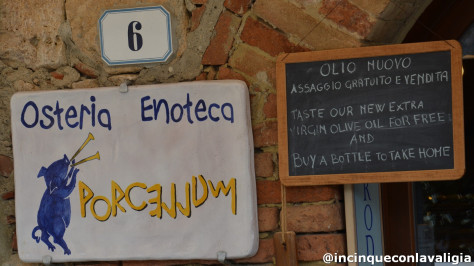 6
Osteria Enoteca
PORCENNUM
OLIO NUOVO
ASSAGGIO GRATUITO E VENDITA
TASTE OUR NEW EXTRA
VIRGIN OLIVE OIL FOR FREE!
AND
BUY A BOTTLE TO TAKE HOME
@incinqueconlavaligia